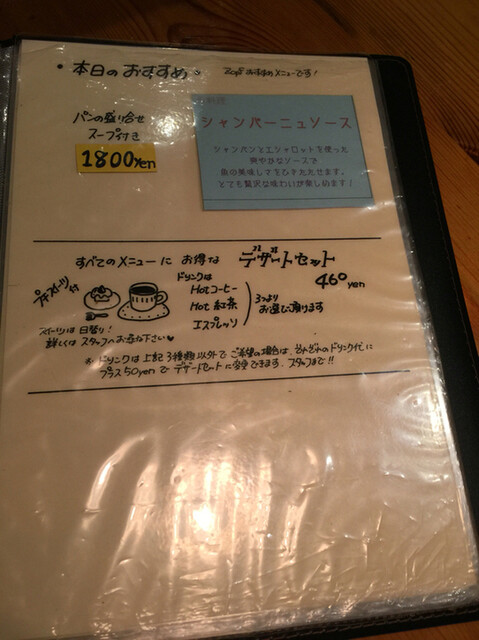 ・本日のおすすめ。 Zopfおすすめメニューです!
パンの盛り合せ
スープ付き
1800yen
シャンパーニュソース
シャンパンとエシャロットを使った
爽やかなソースで
魚の美味しさをひきたたせます。
とても贅沢な味わいが楽しめます!
すべてのメニューに お得な デザートセット
460yen
プチスイーツ付
ドリンクは
Hotコーヒー
Hot紅茶
エスプレッソ
3つより
お選び頂けます
スイーツは日替り!
詳しくはスタッフへお尋ね下さい♥
お、ドリンクは上記3種類以外でご希望の場合は、それぞれのドリンク代に
プラス50yenでデザートセットに変更できます。スタッフまで!!